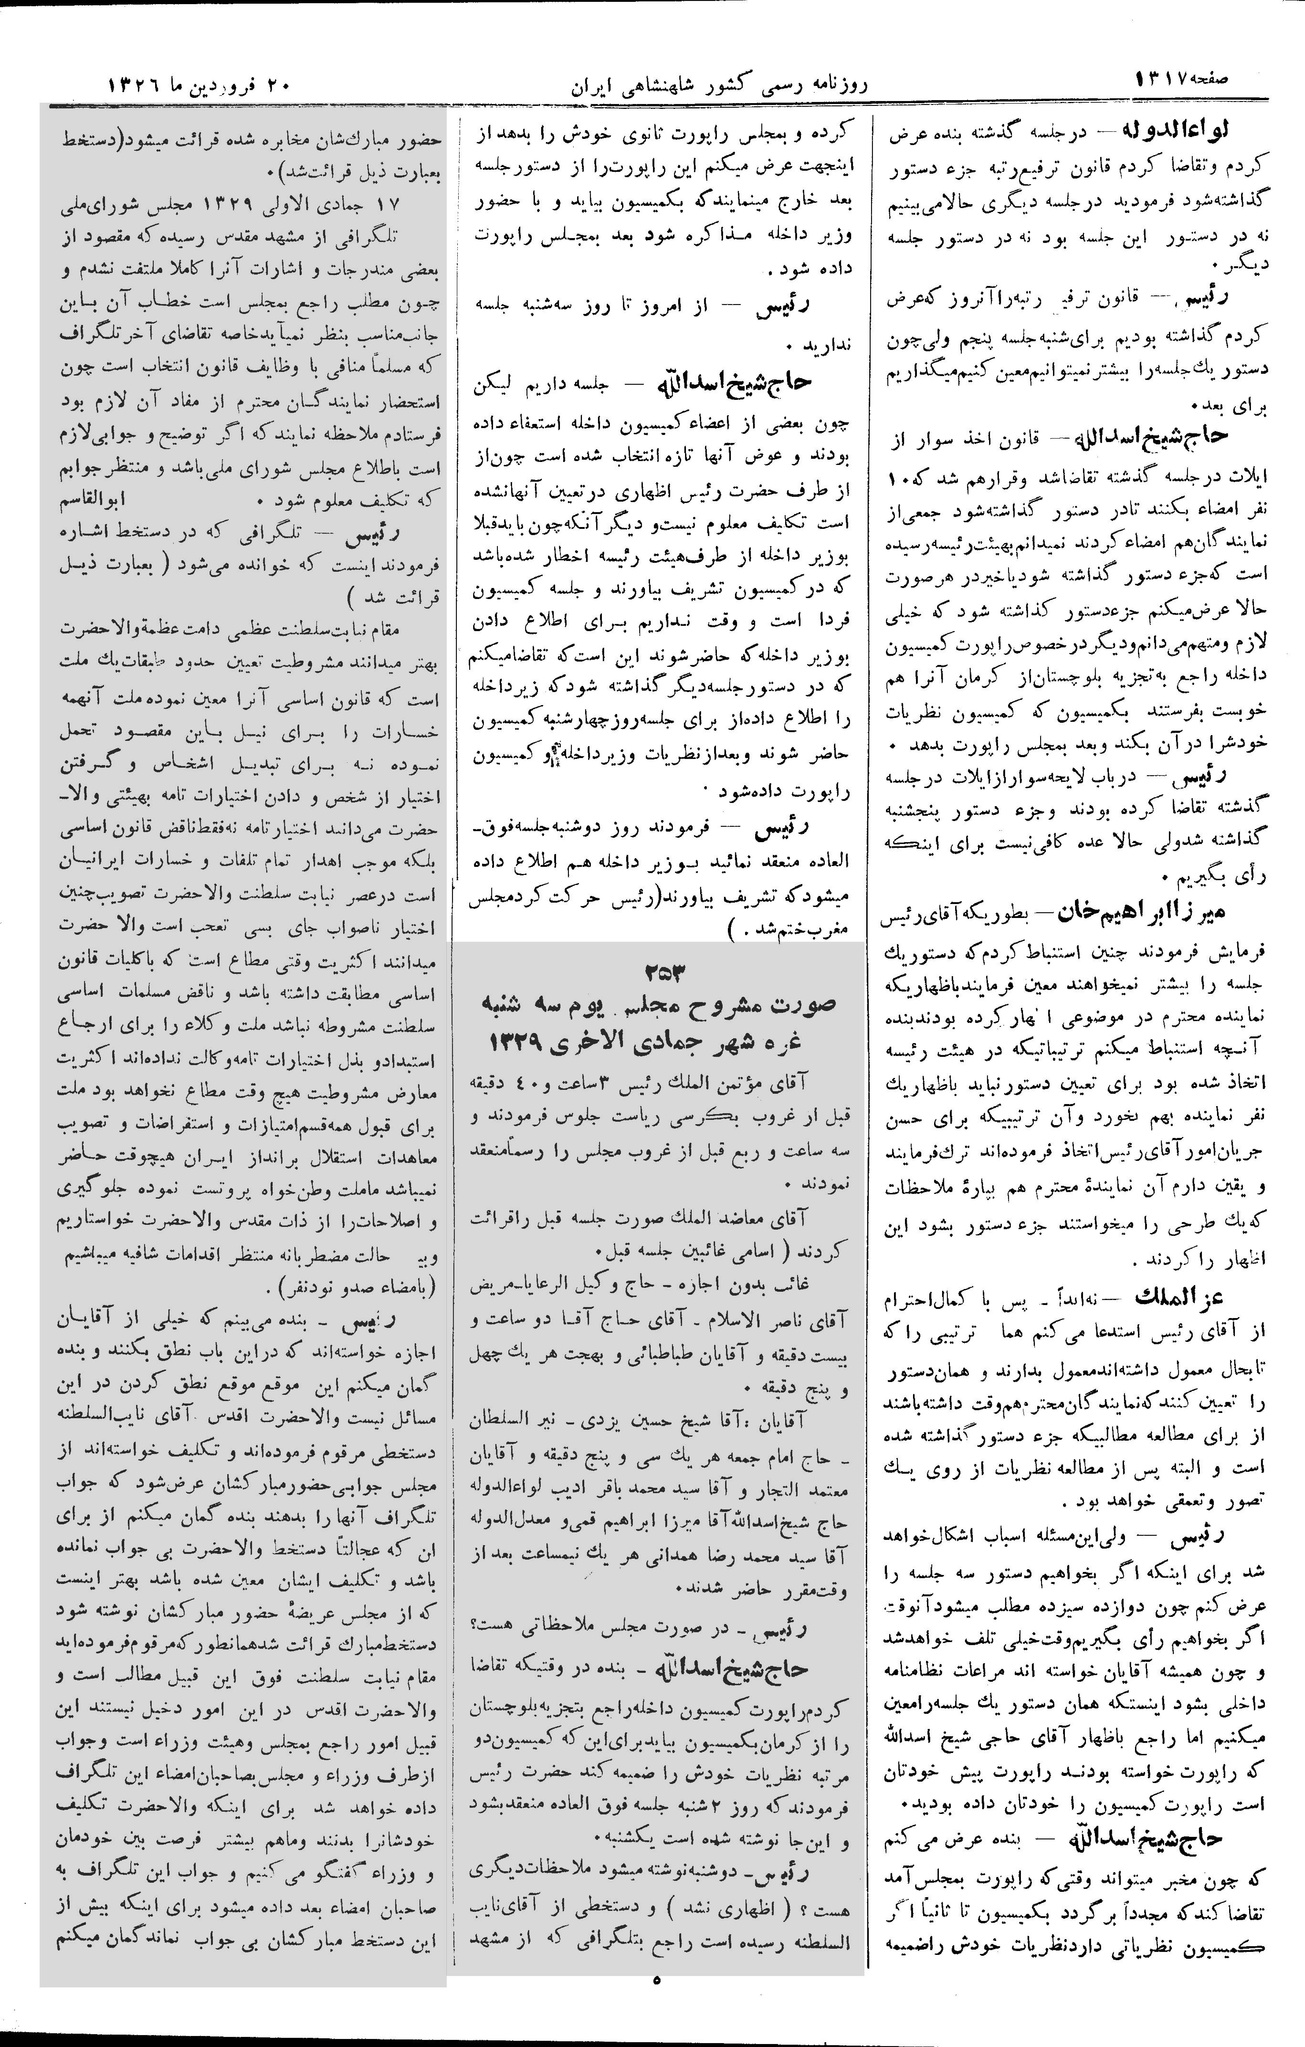 صفحه ۱۳۱۷
روزنامه رسمی کشور شاهنشاهی ایران
۲۰ فروردین ما ۱۳۲۶
لواءالدوله — در جلسه گذشته بنده عرض
کردم و تقاضا کردم قانون ترفیع رتبه جزء دستور
گذاشته شود فرمودید در جلسه دیگری حالا می بینیم
نه در دستور این جلسه بود نه در دستور جلسه
دیگر .
رئیس — قانون ترفیع رتبه را آنروز که عرض
کردم گذاشته بودیم برای شنبه جلسه پنجم ولی چون
دستور یك جلسه را بیشتر نمیتوانیم معین کنیم میگذاریم
برای بعد .
حاج شیخ اسدالله — قانون اخذ سوار از
ایلات در جلسه گذشته تقاضا شد و قرار هم شد که ۱۰
نفر امضاء بکنند تا در دستور گذاشته شود جمعی از
نمایندگان هم امضاء کردند نمیدانم بهیئت رئیسه رسیده
است که جزء دستور گذاشته شود یا خیر در هر صورت
حالا عرض میکنم جزء دستور گذاشته شود که خیلی
لازم و متهم می دانم و دیگر در خصوص راپورت کمیسیون
داخله راجع به تجزیه بلوچستان از کرمان آنرا هم
خوبست بفرستند بکمیسیون که کمیسیون نظریات
خودش را در آن بکند و بعد بمجلس راپورت بدهد .
رئیس — در باب لایحه سوار از ایلات در جلسه
گذشته تقاضا کرده بودند و جزء دستور پنجشنبه
گذاشته شد ولی حالا عده کافی نیست برای اینکه
رأی بگیریم .
میرزا ابراهیم خان — بطوریکه آقای رئیس
فرمایش فرمودند چنین استنباط کردم که دستور یك
جلسه را بیشتر نمیخواهند معین فرمایند باظهاریکه
نماینده محترم در موضوعی اظهار کرده بودند بنده
آنچه استنباط میکنم ترتیباتیکه در هیئت رئیسه
اتخاذ شده بود برای تعیین دستور نباید باظهار یك
نفر نماینده بهم بخورد و آن ترتیبیکه برای حسن
جریان امور آقای رئیس اتخاذ فرموده اند ترك فرمایند
و یقین دارم آن نمایندهٔ محترم هم بپارهٔ ملاحظات
که یك طرحی را میخواستند جزء دستور بشود این
اظهار را کردند .
عزالملك — نه ابداً - پس با کمال احترام
از آقای رئیس استدعا می کنم هما ترتیبی را که
تابحال معمول داشته اند معمول بدارند و همان دستور
را تعیین کنند که نمایندگان محترم هم وقت داشته باشند
از برای مطالعه مطالبیکه جزء دستور گذاشته شده
است و البته پس از مطالعه نظریات از روی یك
تصور و تعمقی خواهد بود .
رئیس — ولی این مسئله اسباب اشکال خواهد
شد برای اینکه اگر بخواهیم دستور سه جلسه را
عرض کنم چون دوازده سیزده مطلب میشود آنوقت
اگر بخواهیم رأی بگیریم وقت خیلی تلف خواهد شد
و چون همیشه آقایان خواسته اند مراعات نظامنامه
داخلی بشود اینستکه همان دستور یك جلسه را معین
میکنیم اما راجع باظهار آقای حاجی شیخ اسدالله
که راپورت خواسته بودند راپورت پیش خودتان
است راپورت کمیسیون را خودتان داده بودید .
حاج شیخ اسدالله — بنده عرض می کنم
که چون مخبر میتواند وقتی که راپورت بمجلس آمد
تقاضا کند که مجدداً برگردد بکمیسیون تا ثانیاً اگر
کمیسیون نظریاتی دارد نظریات خودش را ضمیمه
کرده و بمجلس راپورت ثانوی خودش را بدهد از
اینجهت عرض میکنم این راپورت را از دستور جلسه
بعد خارج مینمایند که بکمیسیون بیاید و با حضور
وزیر داخله مذاکره شود بعد بمجلس راپورت
داده شود .
رئیس — از امروز تا روز سه شنبه جلسه
ندارید .
حاج شیخ اسدالله — جلسه داریم لیکن
چون بعضی از اعضاء کمیسیون داخله استعفاء داده
بودند و عوض آنها تازه انتخاب شده است چون از
از طرف حضرت رئیس اظهاری در تعیین آنها نشده
است تکلیف معلوم نیست و دیگر آنکه چون باید قبلا
بوزیر داخله از طرف هیئت رئیسه اخطار شده باشد
که در کمیسیون تشریف بیاورند و جلسه کمیسیون
فردا است و وقت نداریم برای اطلاع دادن
بوزیر داخله که حاضر شوند این است که تقاضا میکنم
که در دستور جلسه دیگر گذاشته شود که زیر داخله
را اطلاع داده از برای جلسه روز چهارشنبه کمیسیون
حاضر شوند و بعد از نظریات وزیر داخله و کمیسیون
راپورت داده شود .
رئیس — فرمودند روز دوشنبه جلسه فوق-
العاده منعقد نمائید بوزیر داخله هم اطلاع داده
میشود که تشریف بیاورند (رئیس حرکت کرد مجلس
مغرب ختم شد . )
۲۵۳
صورت مشروح مجلس یوم سه شنبه
غره شهر جمادی الاخری ۱۳۲۹
آقای مؤتمن الملك رئیس ۳ ساعت و ۴۰ دقیقه
قبل از غروب بکرسی ریاست جلوس فرمودند و
سه ساعت و ربع قبل از غروب مجلس را رسماً منعقد
نمودند .
آقای معاضد الملك صورت جلسه قبل را قرائت
کردند ( اسامی غائبین جلسه قبل .
غائب بدون اجازه - حاج وکیل الرعایا - مریض
آقای ناصر الاسلام - آقای حاج آقا دو ساعت و
بیست دقیقه و آقایان طباطبائی و بهجت هر یك چهل
و پنج دقیقه .
آقایان : آقا شیخ حسین یزدی - نیر السلطان
- حاج امام جمعه هر یك سی و پنج دقیقه و آقایان
معتمد التجار و آقا سید محمد باقر ادیب لواءالدوله
حاج شیخ اسدالله آقا میرزا ابراهیم قمی و معدل الدوله
آقا سید محمد رضا همدانی هر یك نیمساعت بعد از
وقت مقرر حاضر شدند .
رئیس - در صورت مجلس ملاحظاتی هست؟
حاج شیخ اسدالله - بنده در وقتیکه تقاضا
کردم راپورت کمیسیون داخله راجع بتجزیه بلوچستان
را از کرمان بکمیسیون بیاید برای این که کمیسیون دو
مرتبه نظریات خودش را ضمیمه کند حضرت رئیس
فرمودند که روز ۲ شنبه جلسه فوق العاده منعقد بشود
و این جا نوشته شده است یکشنبه .
رئیس - دوشنبه نوشته میشود ملاحظات دیگری
هست ؟ ( اظهاری نشد ) و دستخطی از آقای نایب
السلطنه رسیده است راجع بتلگرافی که از مشهد
حضور مبارك شان مخابره شده قرائت میشود (دستخط
بعبارت ذیل قرائت شد) .
۱۷ جمادی الاولی ۱۳۲۹ مجلس شورای ملی
تلگرافی از مشهد مقدس رسیده که مقصود از
بعضی مندرجات و اشارات آنرا کاملا ملتفت نشدم و
چون مطلب راجع بمجلس است خطاب آن باین
جانب مناسب بنظر نمیآید خاصه تقاضای آخر تلگراف
که مسلماً منافی با وظایف قانون انتخاب است چون
استحضار نمایندگان محترم از مفاد آن لازم بود
فرستادم ملاحظه نمایند که اگر توضیح و جوابی لازم
است باطلاع مجلس شورای ملی باشد و منتظر جوابم
که تکلیف معلوم شود . ابوالقاسم
رئیس — تلگرافی که در دستخط اشاره
فرمودند اینست که خوانده می شود ( بعبارت ذیل
قرائت شد )
مقام نیابت سلطنت عظمی دامت عظمة والاحضرت
بهتر میدانند مشروطیت تعیین حدود طبقات یك ملت
است که قانون اساسی آنرا معین نموده ملت آنهمه
خسارات را برای نیل باین مقصود تحمل
نموده نه برای تبدیل اشخاص و گرفتن
اختیار از شخص و دادن اختیارات تامه بهیئتی والا-
حضرت می دانند اختیار تامه نه فقط ناقض قانون اساسی
بلکه موجب اهدار تمام تلفات و خسارات ایرانیان
است در عصر نیابت سلطنت والاحضرت تصویب چنین
اختیار ناصواب جای بسی تعجب است والا حضرت
میدانند اکثریت وقتی مطاع است که با کلیات قانون
اساسی مطابقت داشته باشد و ناقض مسلمات اساسی
سلطنت مشروطه نباشد ملت و کلاء را برای ارجاع
استبداد و بذل اختیارات تامه وکالت نداده اند اکثریت
معارض مشروطیت هیچ وقت مطاع نخواهد بود ملت
برای قبول همه قسم امتیازات و استقراضات و تصویب
معاهدات استقلال برانداز ایران هیچوقت حاضر
نمیباشد ما ملت وطن خواه پروتست نموده جلوگیری
و اصلاحات را از ذات مقدس والاحضرت خواستاریم
حالت مضطربانه منتظر اقدامات شافیه میباشیم
(بامضاء صد و نود نفر) .
رئیس - بنده می بینم که خیلی از آقایان
اجازه خواسته اند که در این باب نطق بکنند و بنده
گمان میکنم این موقع موقع نطق کردن در این
مسائل نیست والاحضرت اقدس آقای نایب السلطنه
دستخطی مرقوم فرموده اند و تکلیف خواسته اند از
مجلس جوابی حضور مبارکشان عرض شود که جواب
تلگراف آنها را بدهند بنده گمان میکنم از برای
ان که عجالتاً دستخط والاحضرت بی جواب نمانده
باشد و تکلیف ایشان معین شده باشد بهتر اینست
که از مجلس عریضهٔ حضور مبارکشان نوشته شود
دستخط مبارك قرائت شد همانطور که مرقوم فرموده اید
مقام نیابت سلطنت فوق این قبیل مطالب است و
والاحضرت اقدس در این امور دخیل نیستند این
قبیل امور راجع بمجلس وهیئت وزراء است و جواب
از طرف وزراء و مجلس بصاحبان امضاء این تلگراف
داده خواهد شد برای اینکه والاحضرت تکلیف
خودشان را بدانند و ماهم بیشتر فرصت بین خودمان
و وزراء گفتگو می کنیم و جواب این تلگراف به
صاحبان امضاء بعد داده میشود برای اینکه بیش از
این دستخط مبارکشان بی جواب نماند گمان میکنم
۵